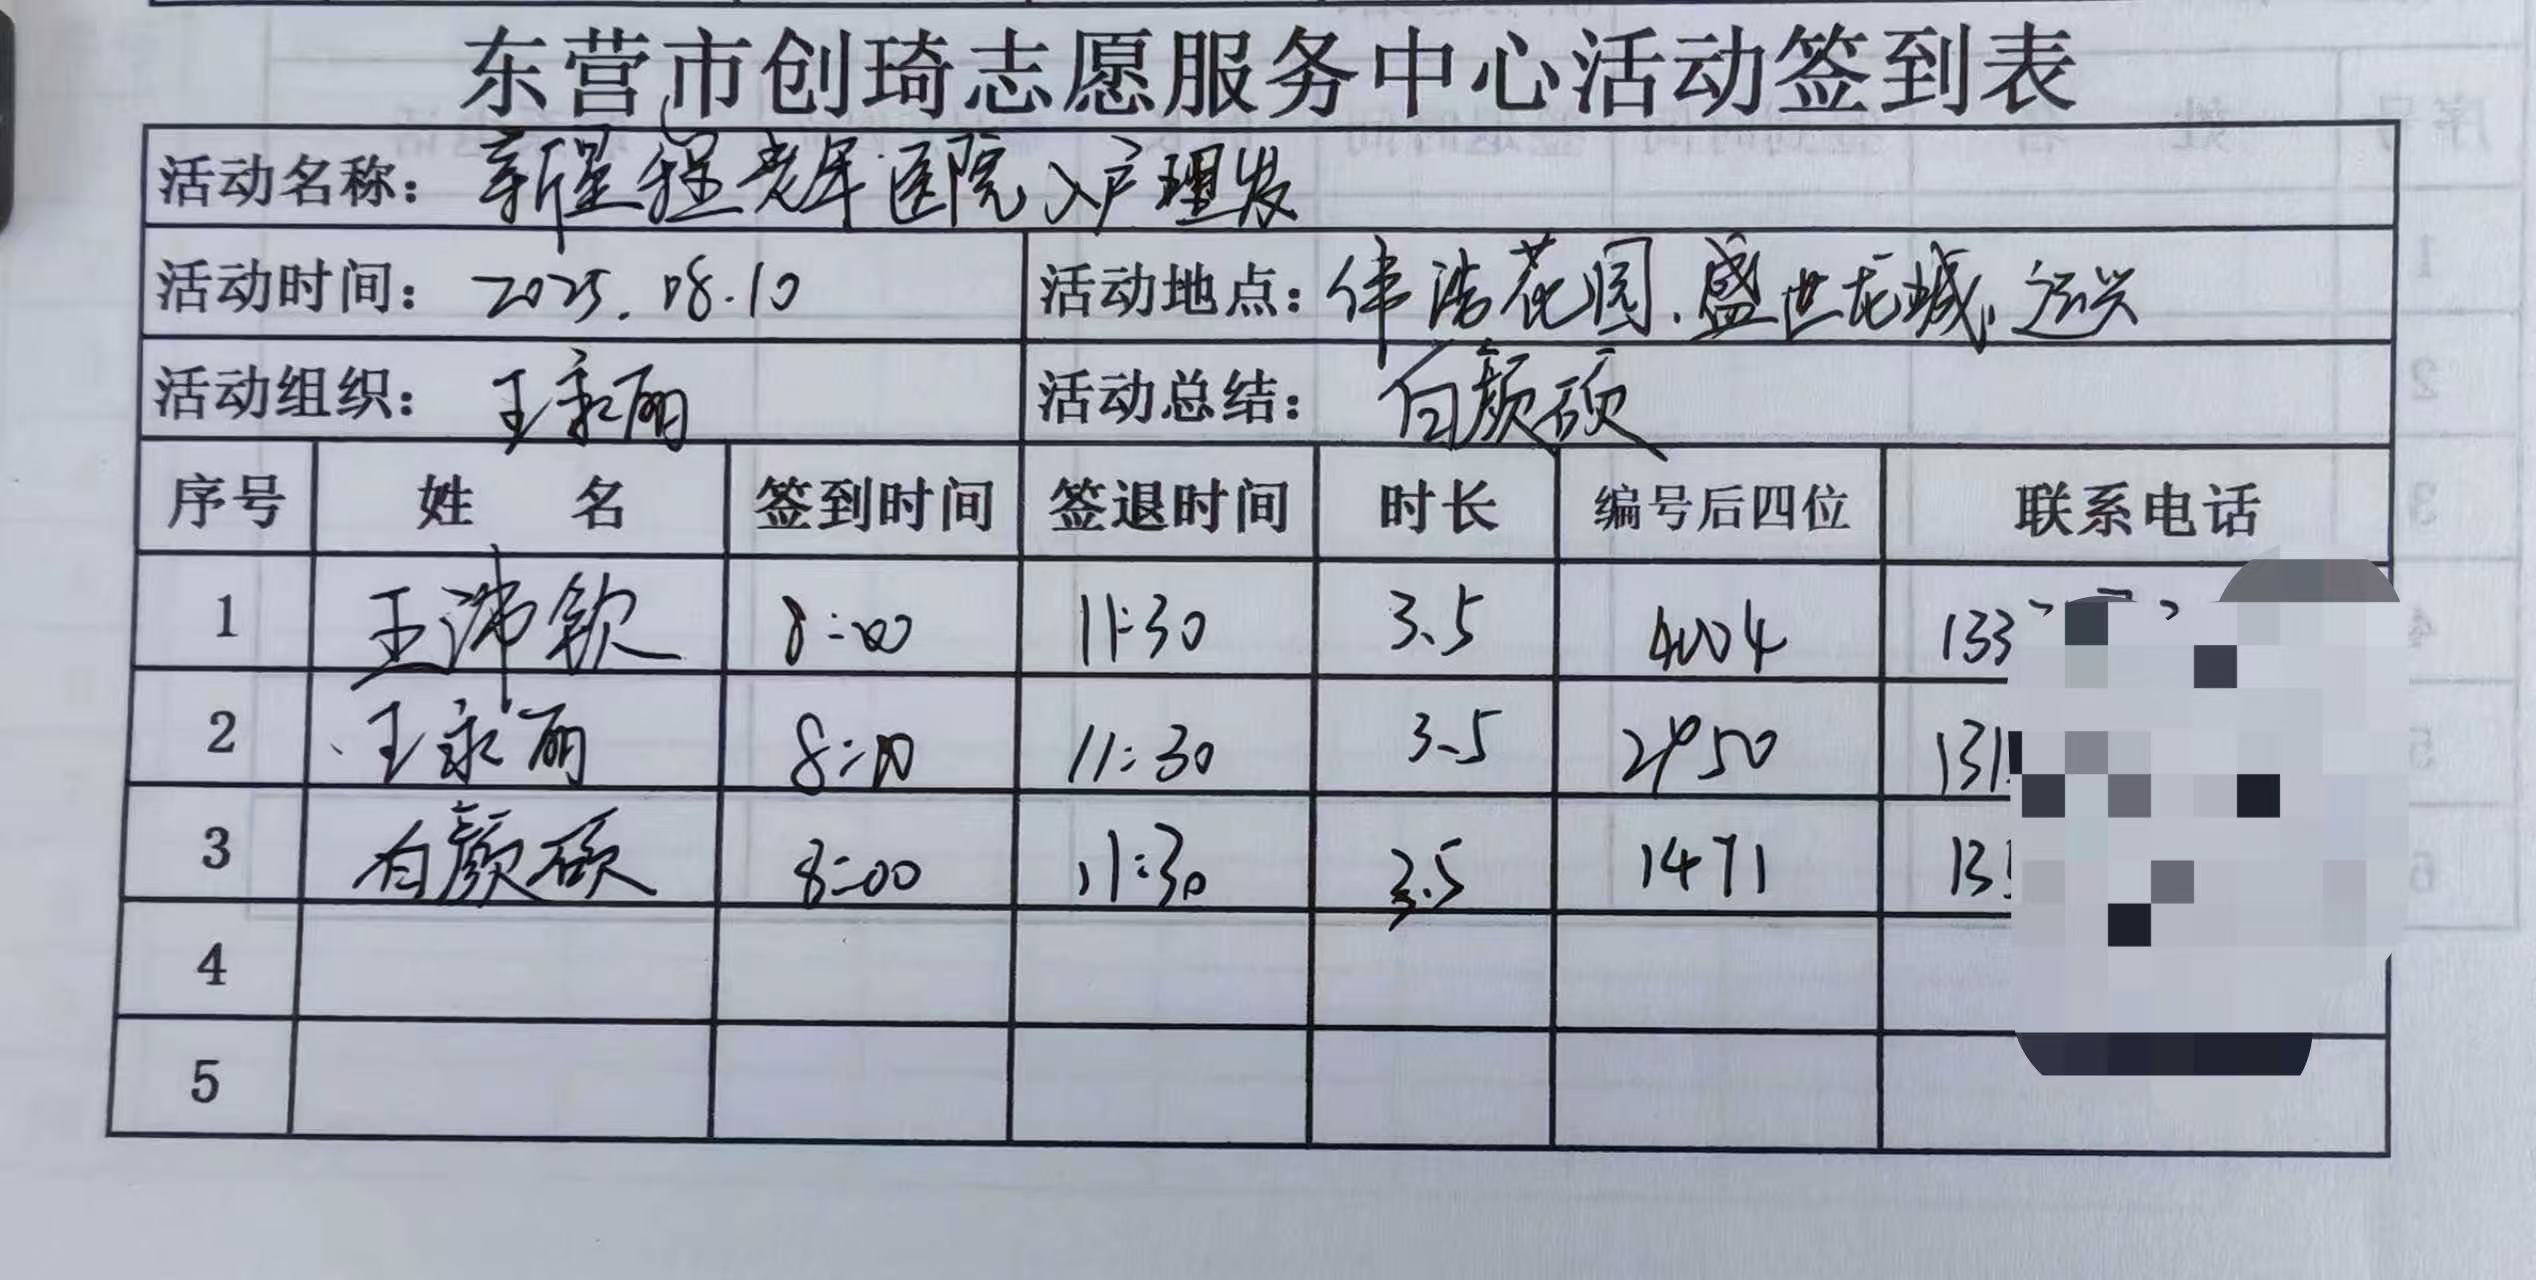 东营市创琦志愿服务中心活动签到表
活动名称: 新星程老年医院入户理发
活动时间: 2025.08.10 活动地点: 伟浩花园.盛世龙城.运兴
活动组织: 王永丽 活动总结: 白颜硕
序号 姓名 签到时间 签退时间 时长 编号后四位 联系电话
1 王沛钦 8:00 11:30 3.5 4004 133
2 王永丽 8:00 11:30 3.5 2950 131
3 白颜硕 8:00 11:30 3.5 1471 13
4
5